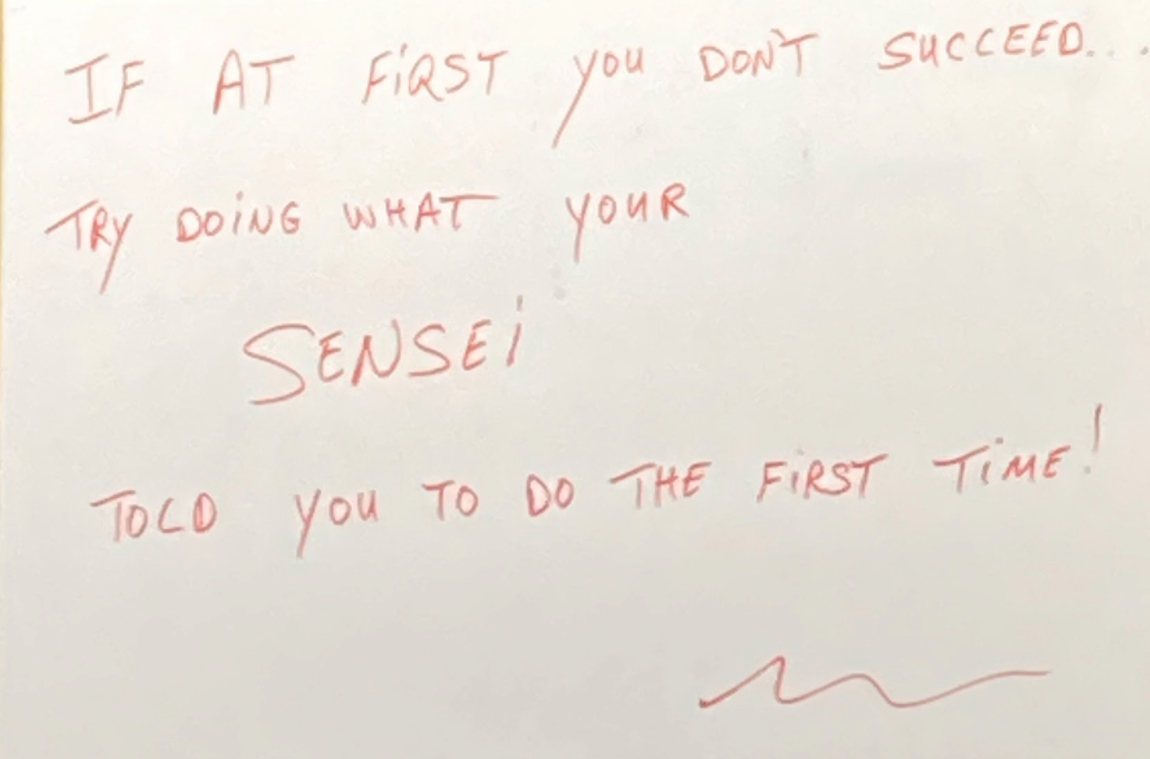 IF AT FIRST YOU DON'T SUCCEED...
TRY DOING WHAT YOUR
SENSEI
TOLD YOU TO DO THE FIRST TIME!